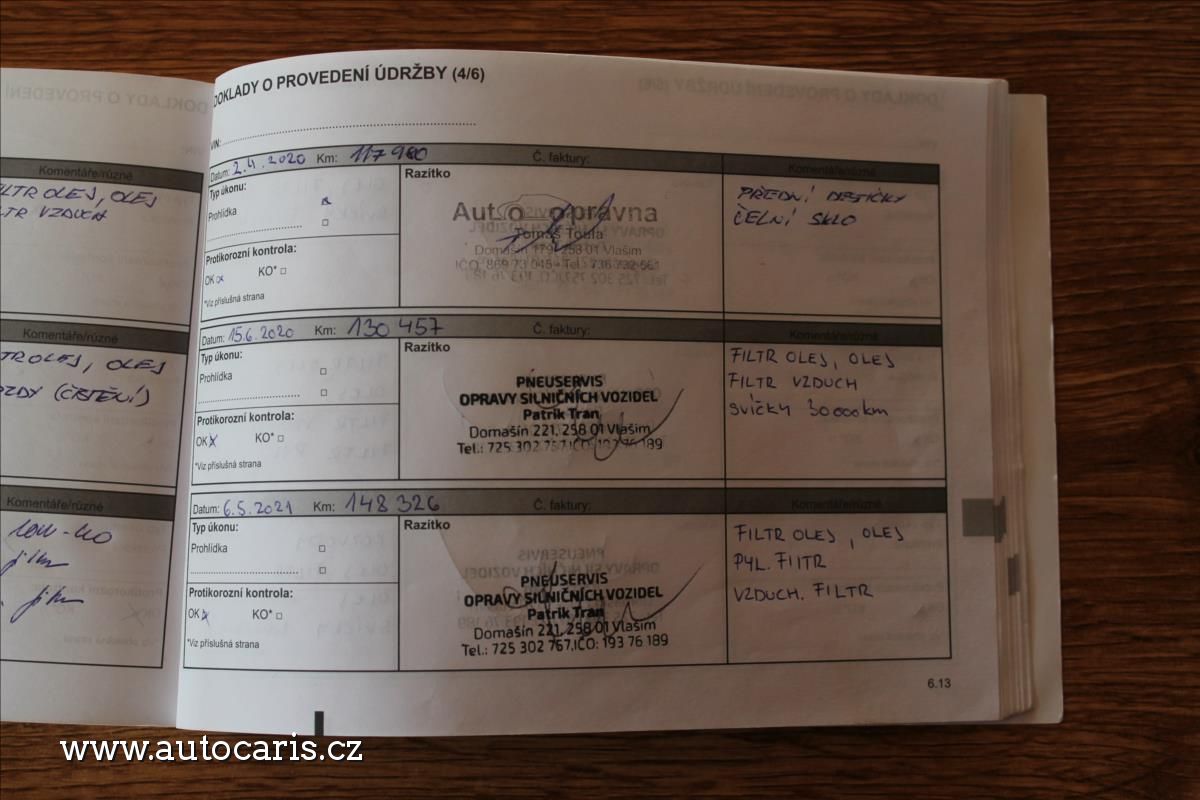 Komentáře/různé
FILTR OLEJ, OLEJ
FILTR VZDUCH
Komentáře/různé
OLEJ, OLEJ
(ČIŠTĚNÍ)
Komentáře/různé
DOKLADY O PROVEDENÍ ÚDRŽBY (4/6)
VIN:
Datum: 2.4.2020 Km: 117 980 Č. faktury: Komentáře/různé
Typ úkonu:
Prohlídka
Protikorozní kontrola:
OK x KO*
*Viz příslušná strana
Razítko
Auto opravna
Tomáš Toula
Domašín 179, 258 01 Vlašim
IČO: 869 73 045 - Tel.: 736 732 561
PŘEDNÍ DESTIČKY
ČELNÍ SKLO
Datum: 15.6.2020 Km: 130 457 Č. faktury: Komentáře/různé
Typ úkonu:
Prohlídka
Protikorozní kontrola:
OK x KO*
*Viz příslušná strana
Razítko
PNEUSERVIS
OPRAVY SILNIČNÍCH VOZIDEL
Patrik Tran
Domašín 221, 258 01 Vlašim
Tel.: 725 302 767, IČO: 193 76 189
FILTR OLEJ, OLEJ
FILTR VZDUCH
SVÍČKY 30000km
Datum: 6.5.2021 Km: 148 326 Č. faktury: Komentáře/různé
Typ úkonu:
Prohlídka
Protikorozní kontrola:
OK x KO*
*Viz příslušná strana
Razítko
PNEUSERVIS
OPRAVY SILNIČNÍCH VOZIDEL
Patrik Tran
Domašín 221, 258 01 Vlašim
Tel.: 725 302 767, IČO: 193 76 189
FILTR OLEJ, OLEJ
PYL. FILTR
VZDUCH. FILTR
6.13
www.autocaris.cz